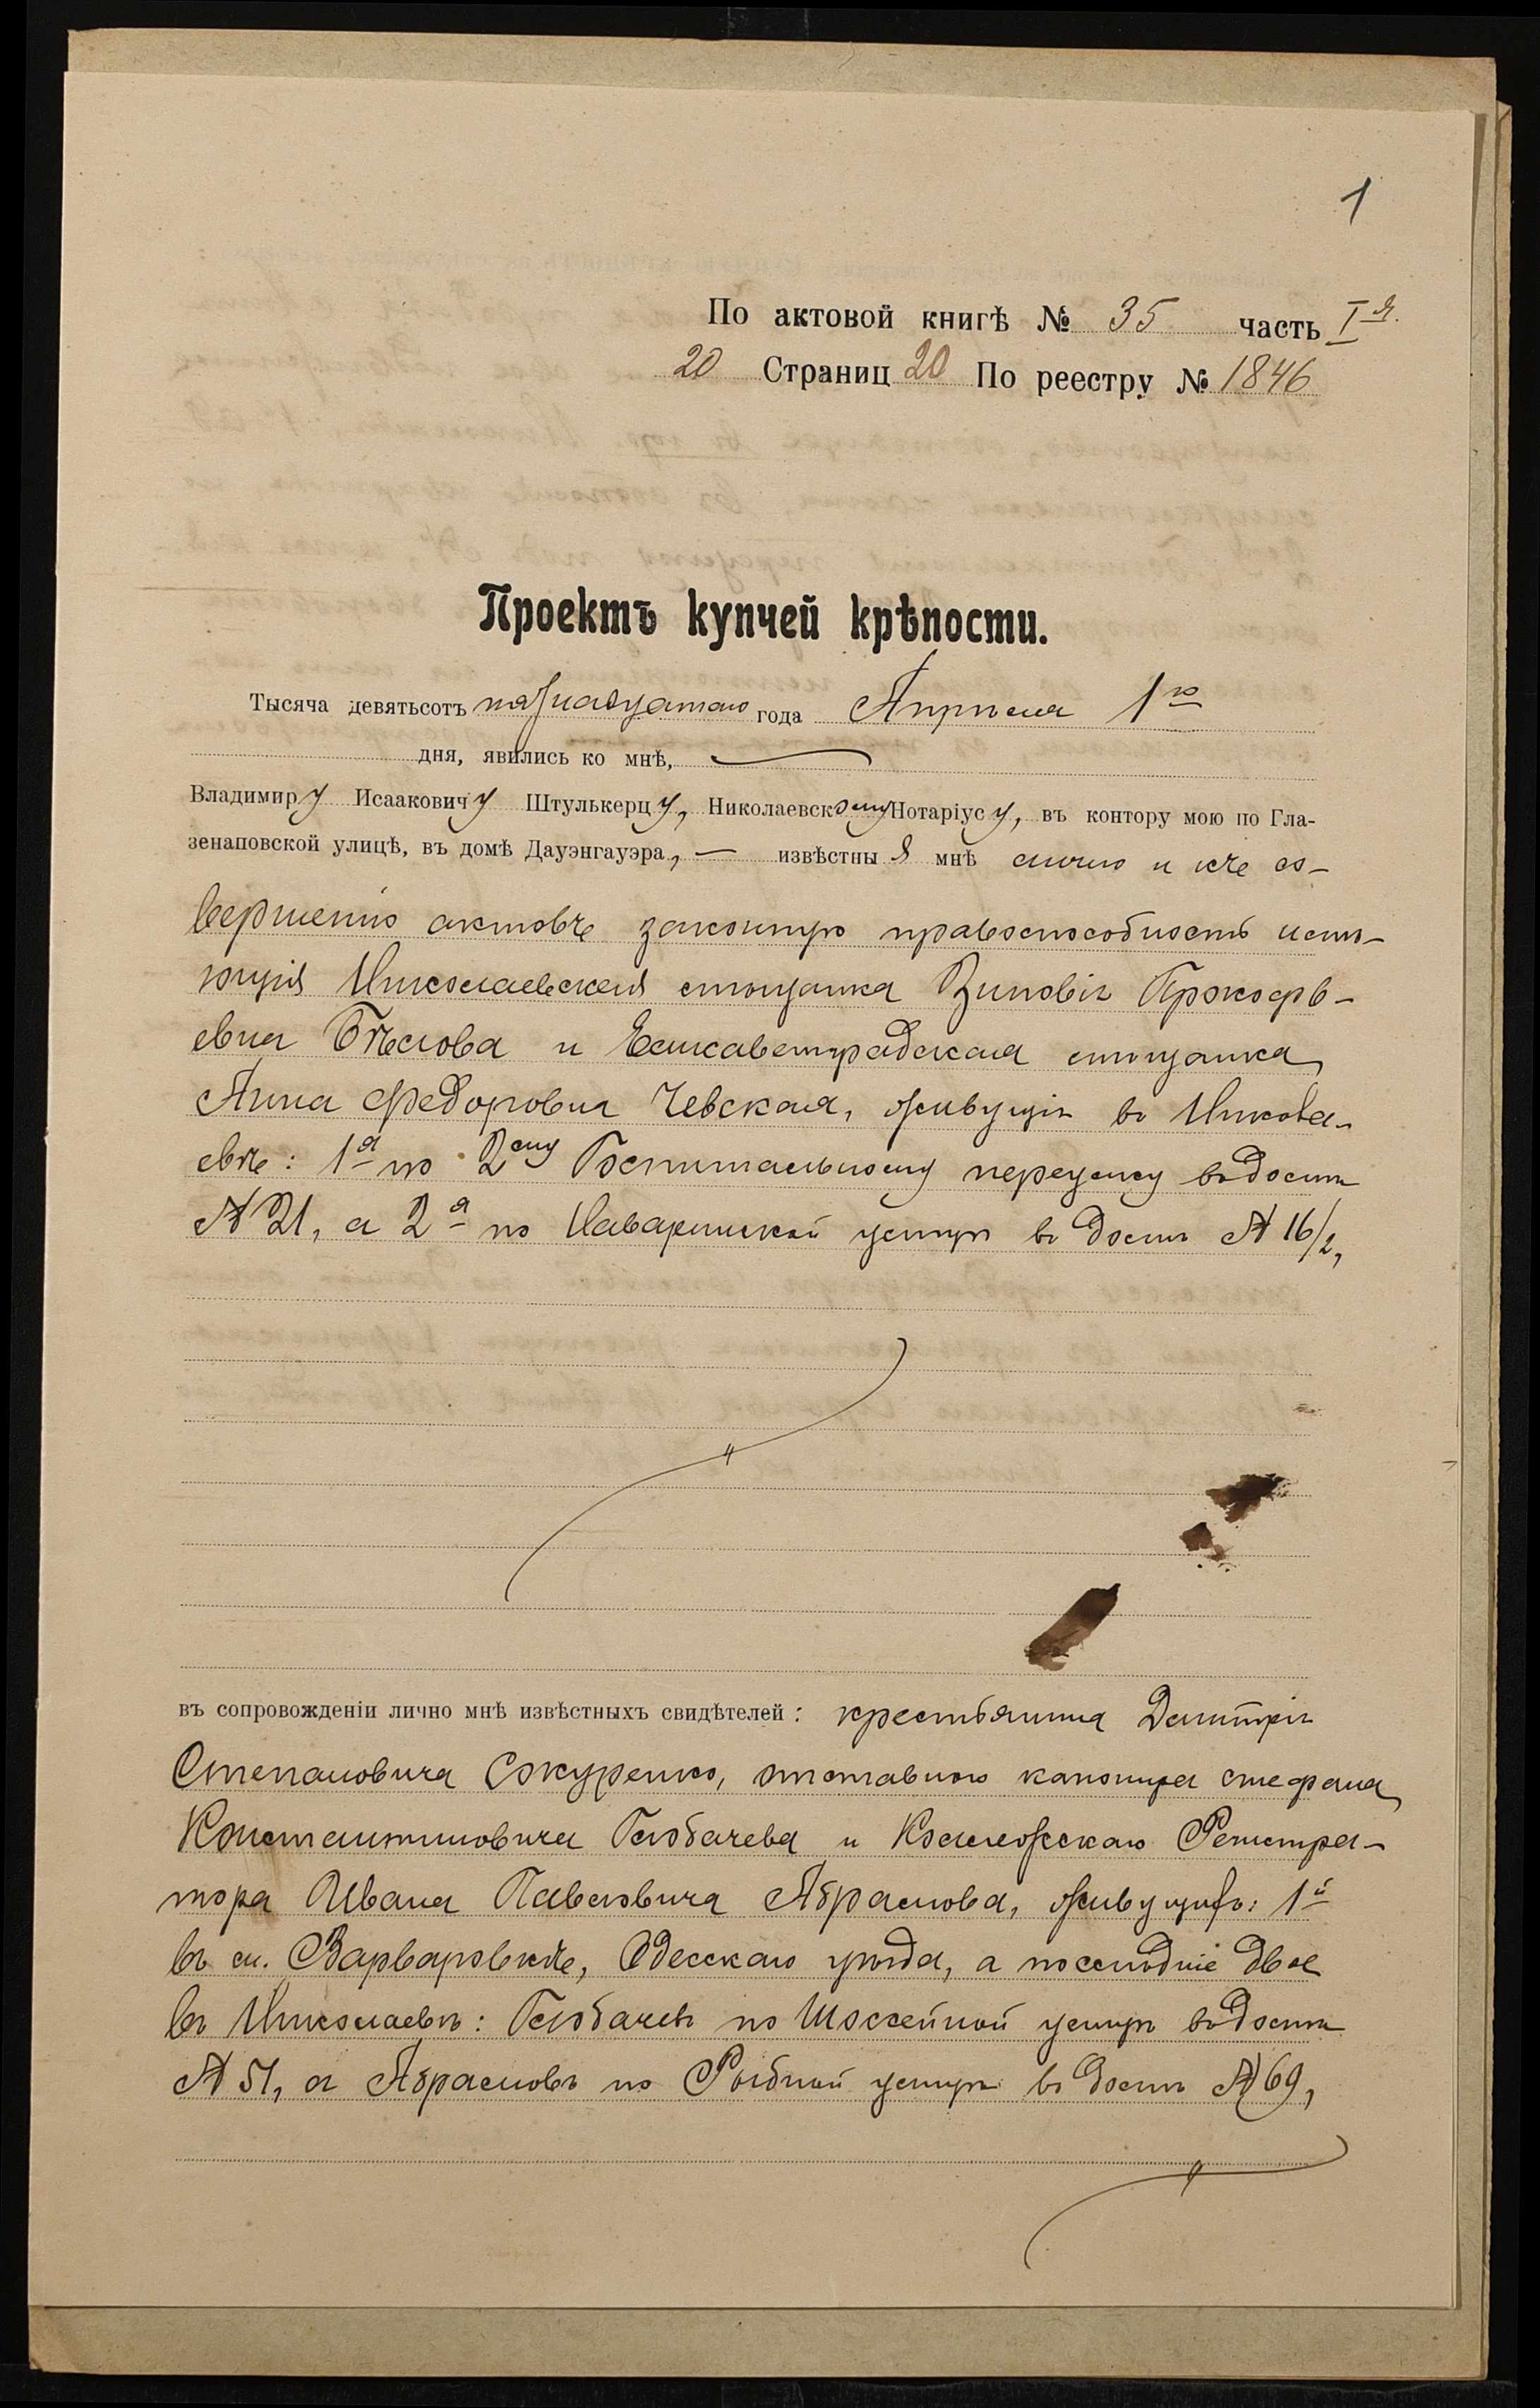 1
По актовой книгѣ № 35 часть I я.
20 Страниц 20 По реестру № 1846
Проектъ купчей крѣпости.
Тысяча девятьсотъ пятнадцатаго года Апрѣля 1го
дня, явились ко мнѣ,
Владимиру Исааковичу Штулькерцу, Николаевскому Нотаріусу, въ контору мою по Гла-
зенаповской улицѣ, въ домѣ Дауэнгауэра, — извѣстныя мнѣ лично и къ со-
вершенію актовъ законную правоспособность имѣ-
ющія Николаевская мѣщанка Зиновія Прокофь-
евна Бѣлова и Елисаветградская мѣщанка
Анна Федоровна Чевская, живущія въ Никола-
евѣ: 1я по 2му Госпитальному переулку въ домѣ
№ 21, а 2я по Наваринской улицѣ въ домѣ № 16/2,
въ сопровожденіи лично мнѣ извѣстныхъ свидѣтелей: крестьянина Димитрія
Степановича Сокуренко, отставного канонира Стефана
Константиновича Голобачева и Коллежскаго Регистра-
тора Ивана Павловича Абрамова, живущихъ: 1й
въ м. Варваровкѣ, Одесскаго уѣзда, а послѣдніе двое
въ Николаевѣ: Голобачевъ по Шоссейной улицѣ въ домѣ
№ 51, а Абрамовъ по Рыбной улицѣ въ домѣ № 69,